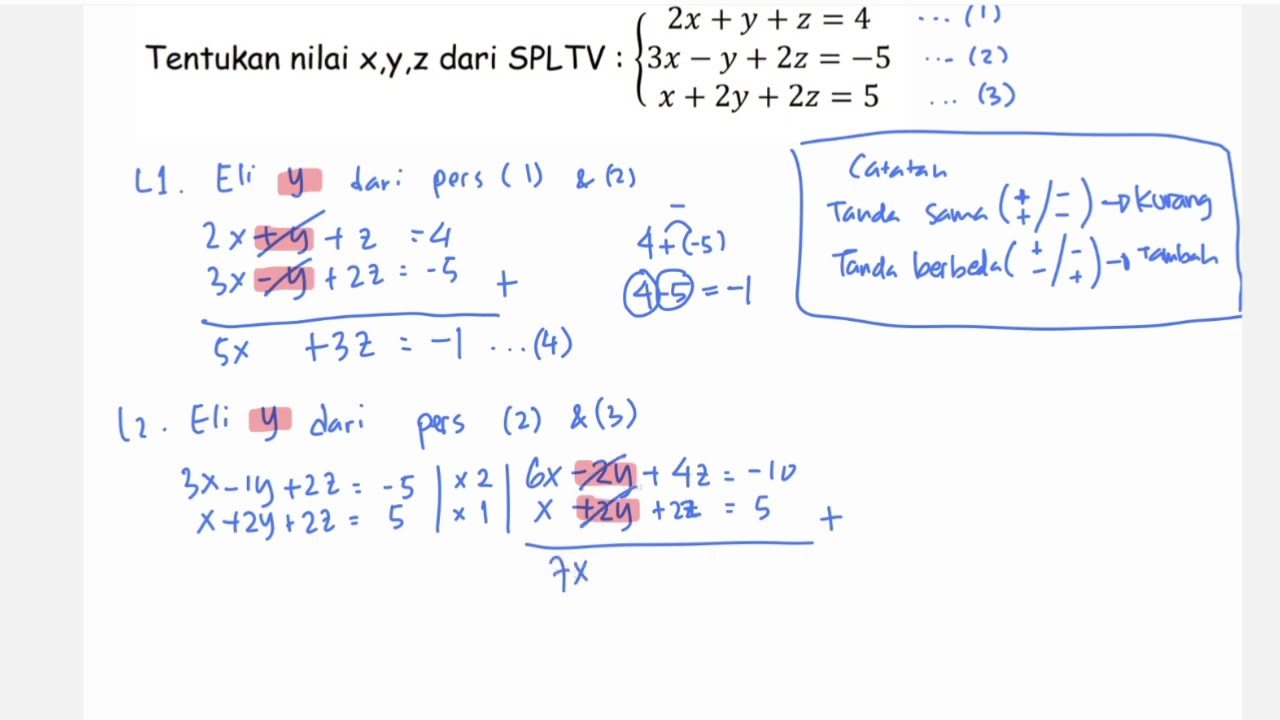 2x + y + z = 4 ... (1)
Tentukan nilai x,y,z dari SPLTV : 3x − y + 2z = −5 ... (2)
x + 2y + 2z = 5 ... (3)
L1. Eli y dari pers (1) & (2)
2x + y + z = 4
3x - y + 2z = -5 +
5x +3z = -1 ...(4)
−
4+(-5)
4-5 = -1
Catatan
Tanda sama (+/+ / −/−) → Kurang
Tanda berbeda (+/− / −/+) → Tambah
L2. Eli y dari pers (2) & (3)
3x-1y+2z = -5 | x 2 | 6x -2y + 4z = -10
x+2y+2z = 5 | x 1 | x +2y +2z = 5 +
7x